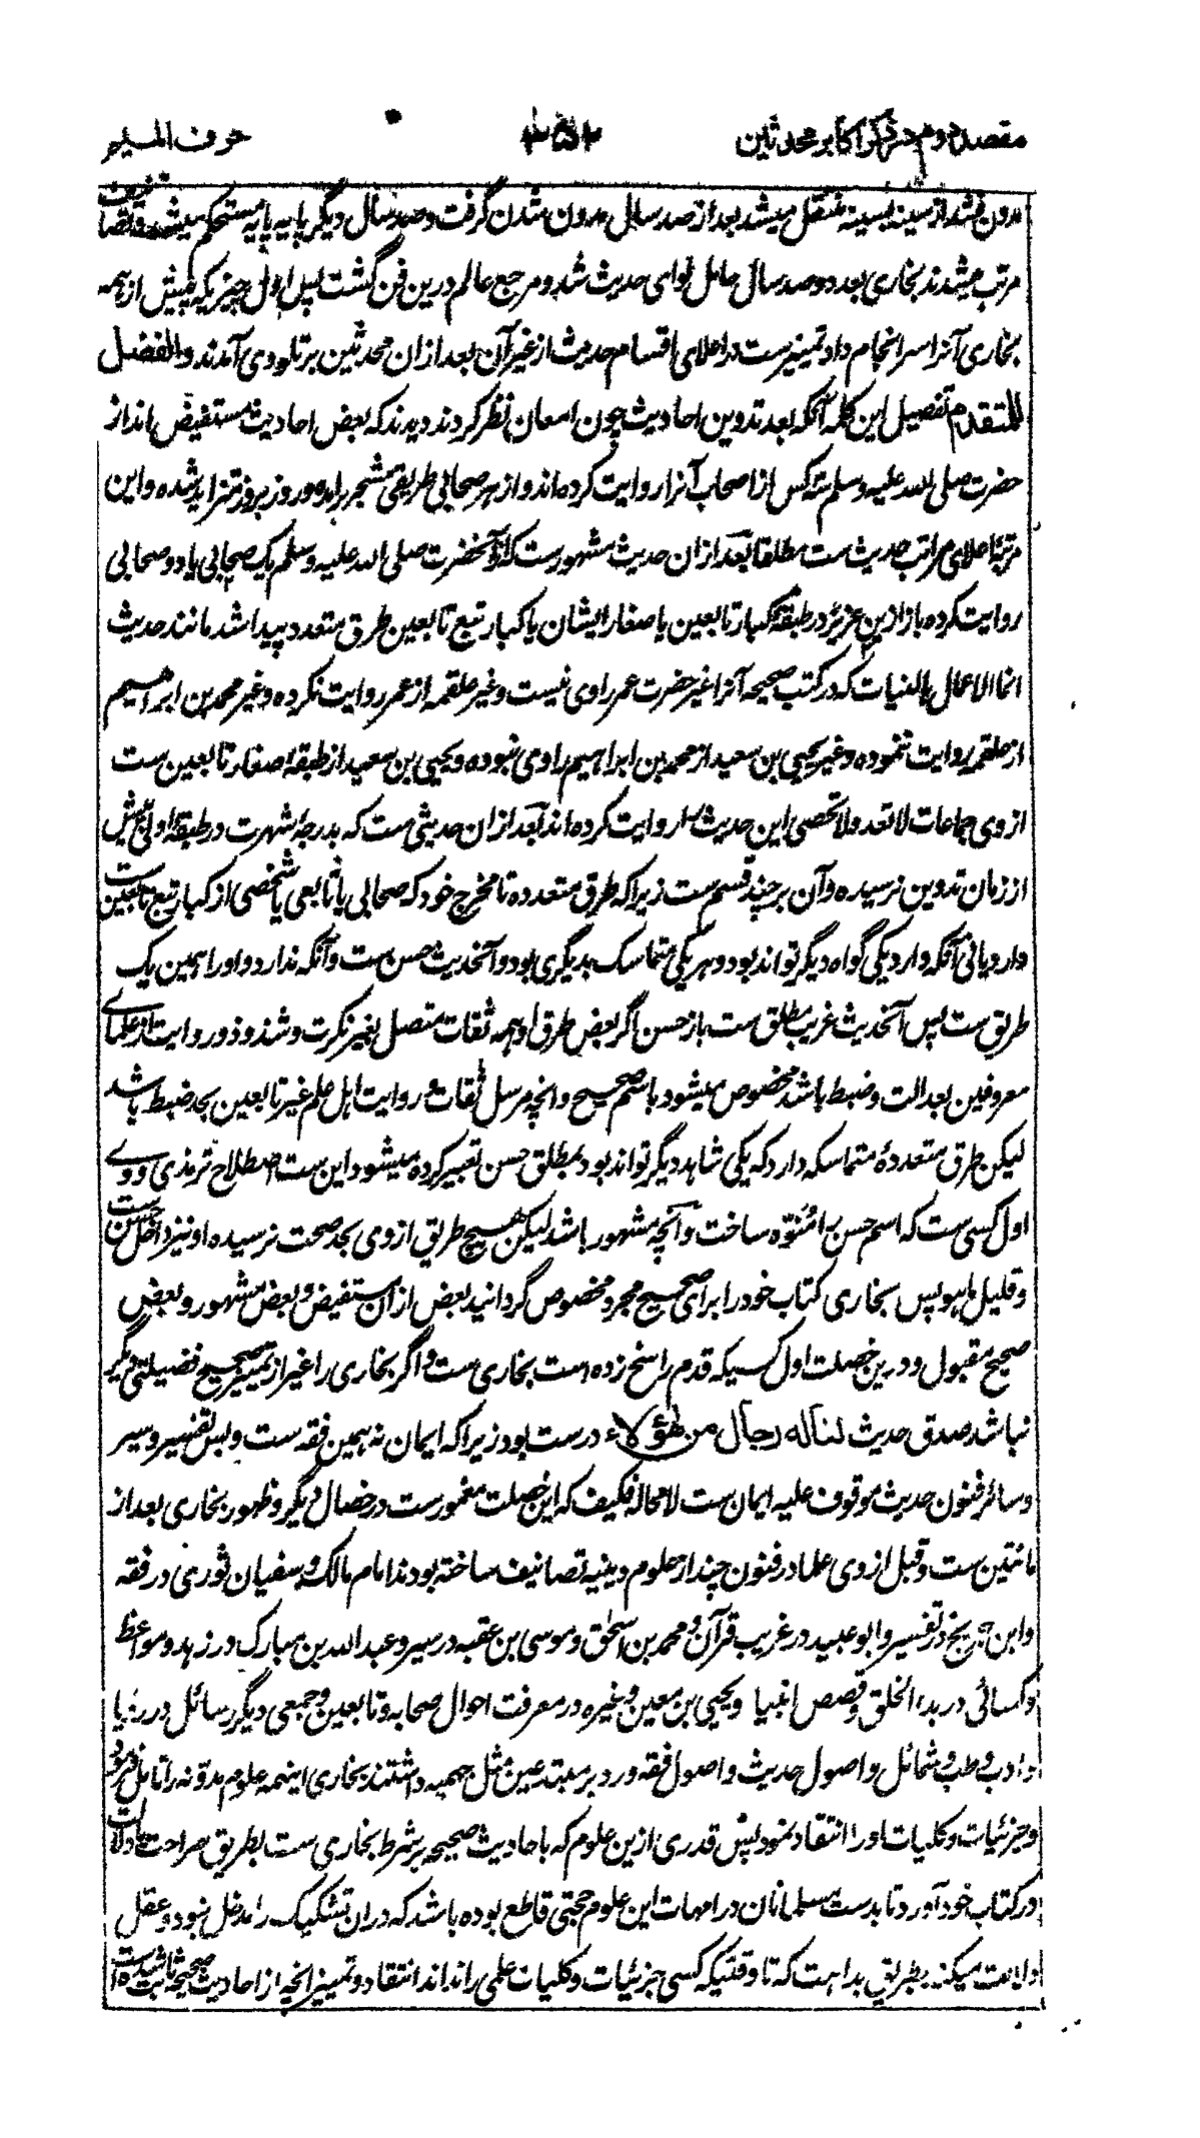 مقصد دوم در ذکر اکابر محدثین ۳۵۲ حرف المیم
مدون نشد از سینه بسینه منتقل میشد بعد از صد سال مدون شدن گرفت و صد سال دیگر پایه پایه مستحکم میشد و تصانیف
مرتب میشدند بخاری بعد دو صد سال حامل لوای حدیث شد و مرجع عالم درین فن گشت پس اول چیزیکه پیش از همه
بخاری آنرا سرانجام داد تمییز ست در اعلای اقسام حدیث از غیر آن بعد ازان محدثین بر تلو وی آمدند والفضل
للمتقدم تفصیل این کلمه آنکه بعد تدوین احادیث چون امعان نظر کردند دیدند که بعض احادیث مستفیض اند از
حضرت صلی الله علیه وسلم سه کس از اصحاب آنرا روایت کرده اند و از هر صحابی طریقی متشجر برآمده و روز بروز متزاید شده و این
مرتبۂ اعلای مراتب حدیث ست مطلقا بعد ازان حدیث مشهور ست که از آنحضرت صلی الله علیه وسلم یک صحابی یا دو صحابی
روایت کرده باز ازین عزیز در طبقۂ کبار تابعین یا صغار ایشان یا کبار تبع تابعین طرق متعدد پیدا شد مانند حدیث
انما الاعمال بالنیات که در کتب صحیحه آنرا غیر حضرت عمر راوی نیست و غیر علقمه از عمر روایت نکرده و غیر محمد بن ابراهیم
از علقمه روایت ننموده و غیر یحیی بن سعید از محمد بن ابراهیم راوی نبوده و یحیی بن سعید از طبقۂ صغار تابعین ست
از وی جماعات لا تعد ولا تحصی این حدیث را روایت کرده اند بعد ازان حدیثی ست که بدرجۂ شهرت در طبقۂ اولی پیش
از زمان تدوین نرسیده و آن بر چند قسم ست زیرا که طرق متعدده تا مخرج خود که صحابی یا تابعی یا شخصی از کبار تبع تابعین ست
دارد یانی آنکه دارد یکی گواه دیگر تواند بود و هر یکی متماسک بدیگری بود و آنحدیث حسن ست و آنکه ندارد و او را همین یک
طریق ست پس آنحدیث غریب مطلق ست باز حسن اگر بعض طرق او همه ثقات متصل بغیر نکرت و شذوذ و روایت از علمای
معروفین بعدالت و ضبط باشد مخصوص میشود باسم صحیح و انچه مرسل ثقات و روایت اهل علم غیر تابعین بحد ضبط باشد
لیکن طرق متعددۂ متماسکه دارد که یکی شاهد دیگر تواند بود بمطلق حسن تعبیر کرده میشود این ست اصطلاح ترمذی و وے
اول کسی ست که اسم حسن را مُنَوّه ساخت و آنچه مشهور باشد لیکن هیچ طریق از وی بحد صحت نرسیده او نیز داخل حسن ست
و قلیل ما هو پس بخاری کتاب خود را برای صحیح مجرد مخصوص گردانید بعض ازان مستفیض و بعض مشهور و بعض
صحیح مقبول و درین خصلت اول کسیکه قدم راسخ زده است بخاری ست و اگر بخاری را غیر از تمییز صحیح فضیلتی دیگر
نباشد صدق حدیث لناله رجال من هؤلاء درست بود زیرا که ایمان نه همین فقه ست و بس تفسیر و سیر
و سائر فنون حدیث موقوف علیه ایمان ست لا محاله فکیف که این خصلت مغمور ست در خصال دیگر و ظهور بخاری بعد از
مائتین ست و قبل از وی علما در فنون چند از علوم دینیه تصانیف ساخته بودند امام مالک و سفیان ثوری در فقه
و ابن جریج در تفسیر و ابو عبید در غریب قرآن و محمد بن اسحٰق و موسی بن عقبه در سیر و عبد الله بن مبارک در زهد و مواعظ
و کسائی در بدء الخلق و قصص انبیا و یحیی بن معین و غیره در معرفت احوال صحابه و تابعین و جمعی دیگر رسائل در رؤیا
و ادب و طب و شمائل و اصول حدیث و اصول فقه و رد بر مبتدعین مثل جهمیه داشتند بخاری اینهمه علوم مدونه را تامل فرمود
و جزئیات و کلیات او را انتقاد نمود پس قدری ازین علوم که باحادیث صحیحه بر شرط بخاری ست بطریق صراحت یا دلالت
در کتاب خود آورد تا بدست مسلمانان در امهات این علوم حجتی قاطع بوده باشد که دران تشکیک را مدخل نبود و عقل
دلالت میکند بطریق بداهت که تا وقتیکه کسی جزئیات و کلیات علمی را نداند انتقاد و تمییز انچه از احادیث صحیحه ثابت